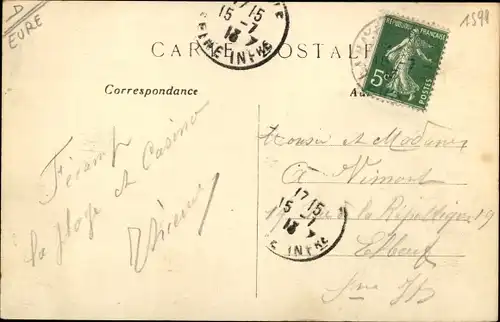 D
EURE
1599
17 15
15 - 7
13
SEINE INFRE
CARTE POSTALE
REPUBLIQUE FRANÇAISE
5c
POSTES
Correspondance
Fécamp
la plage et Casino
Monsieur et Madame
A. Nimont
19 rue de la République 19
Elbeuf
Sne Ifre
17 15
15 - 7
13
SEINE INFRE